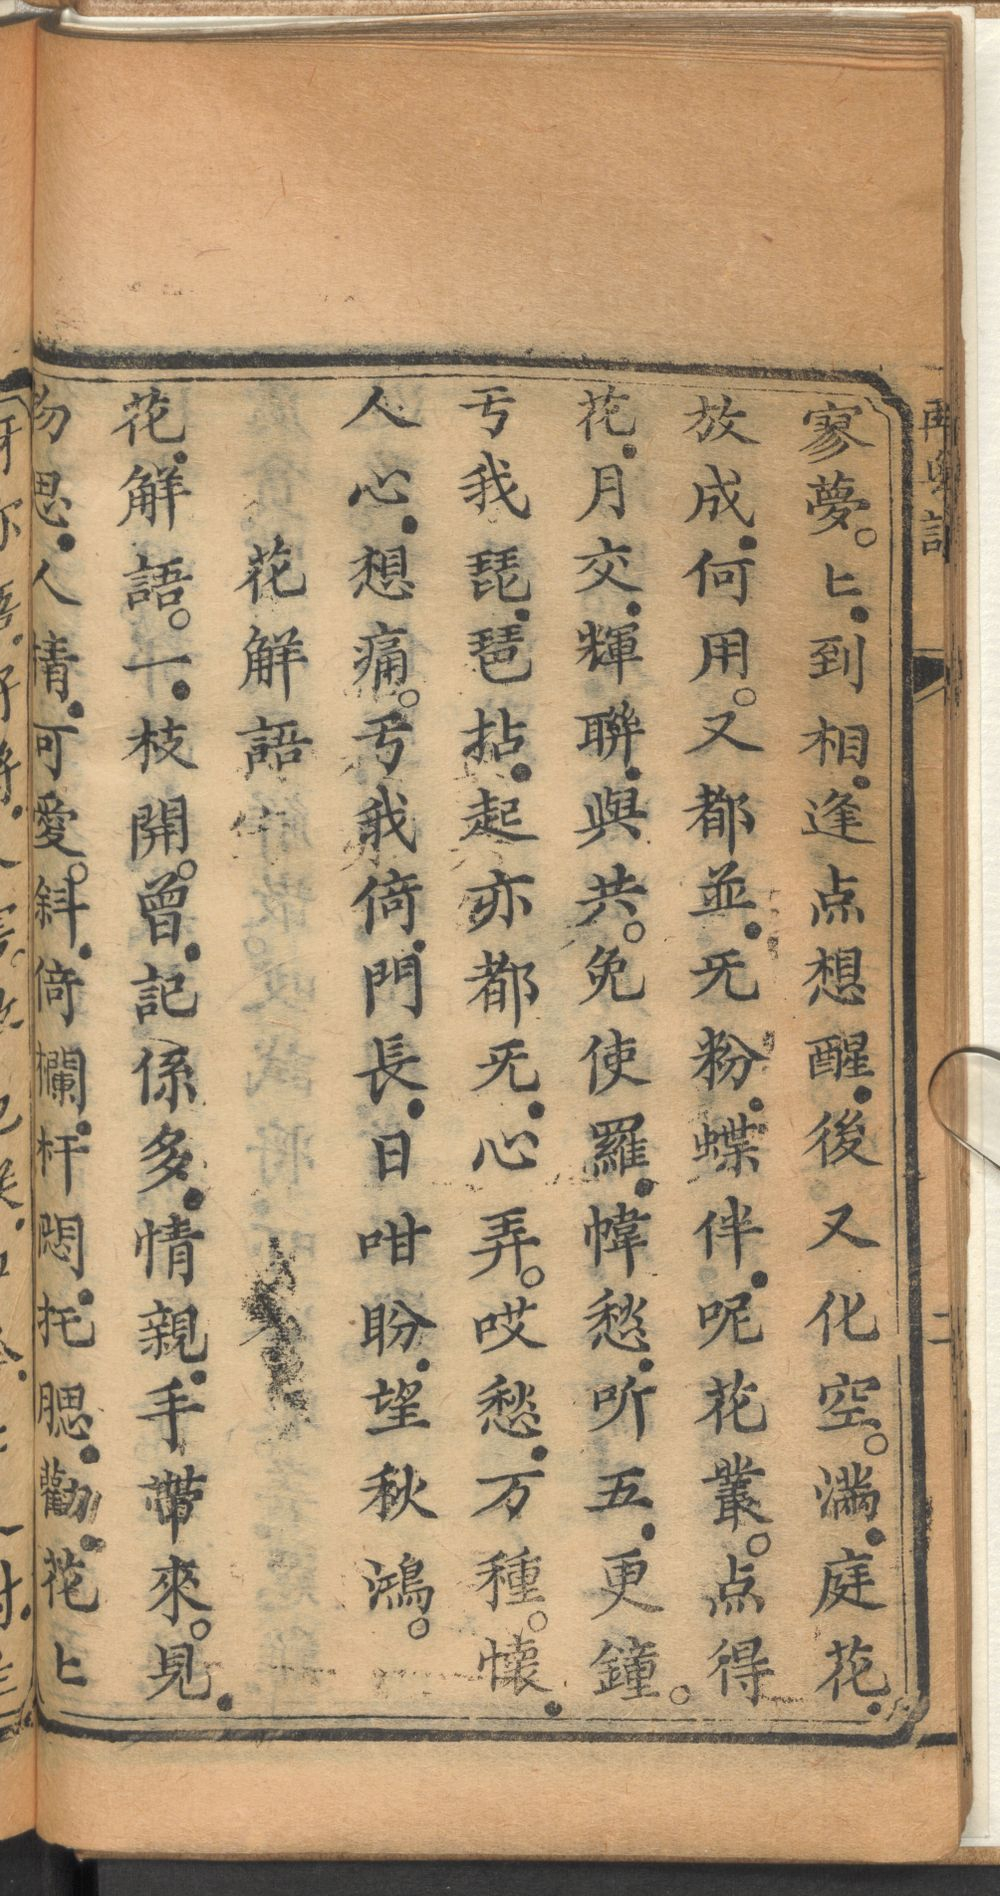 寥夢。匕.到相.逢点想醒.後又化空。滿.庭花.
放成.何用。又都並.旡粉.蝶伴.呢花叢。点得
花.月交.輝聯.與共。免使羅.幃愁.听五.更鐘。
亐我琵.琶拈.起亦都旡.心弄。哎愁.万種。懐.
人心.想痛。亐我倚.門長.日咁盼.望秋鴻。
花解語
花.解語。一.枝開。曾.記係多.情親.手帶來。見.
物思.人情.可愛。斜.倚欄.杆悶.托腮.勸.花匕
二